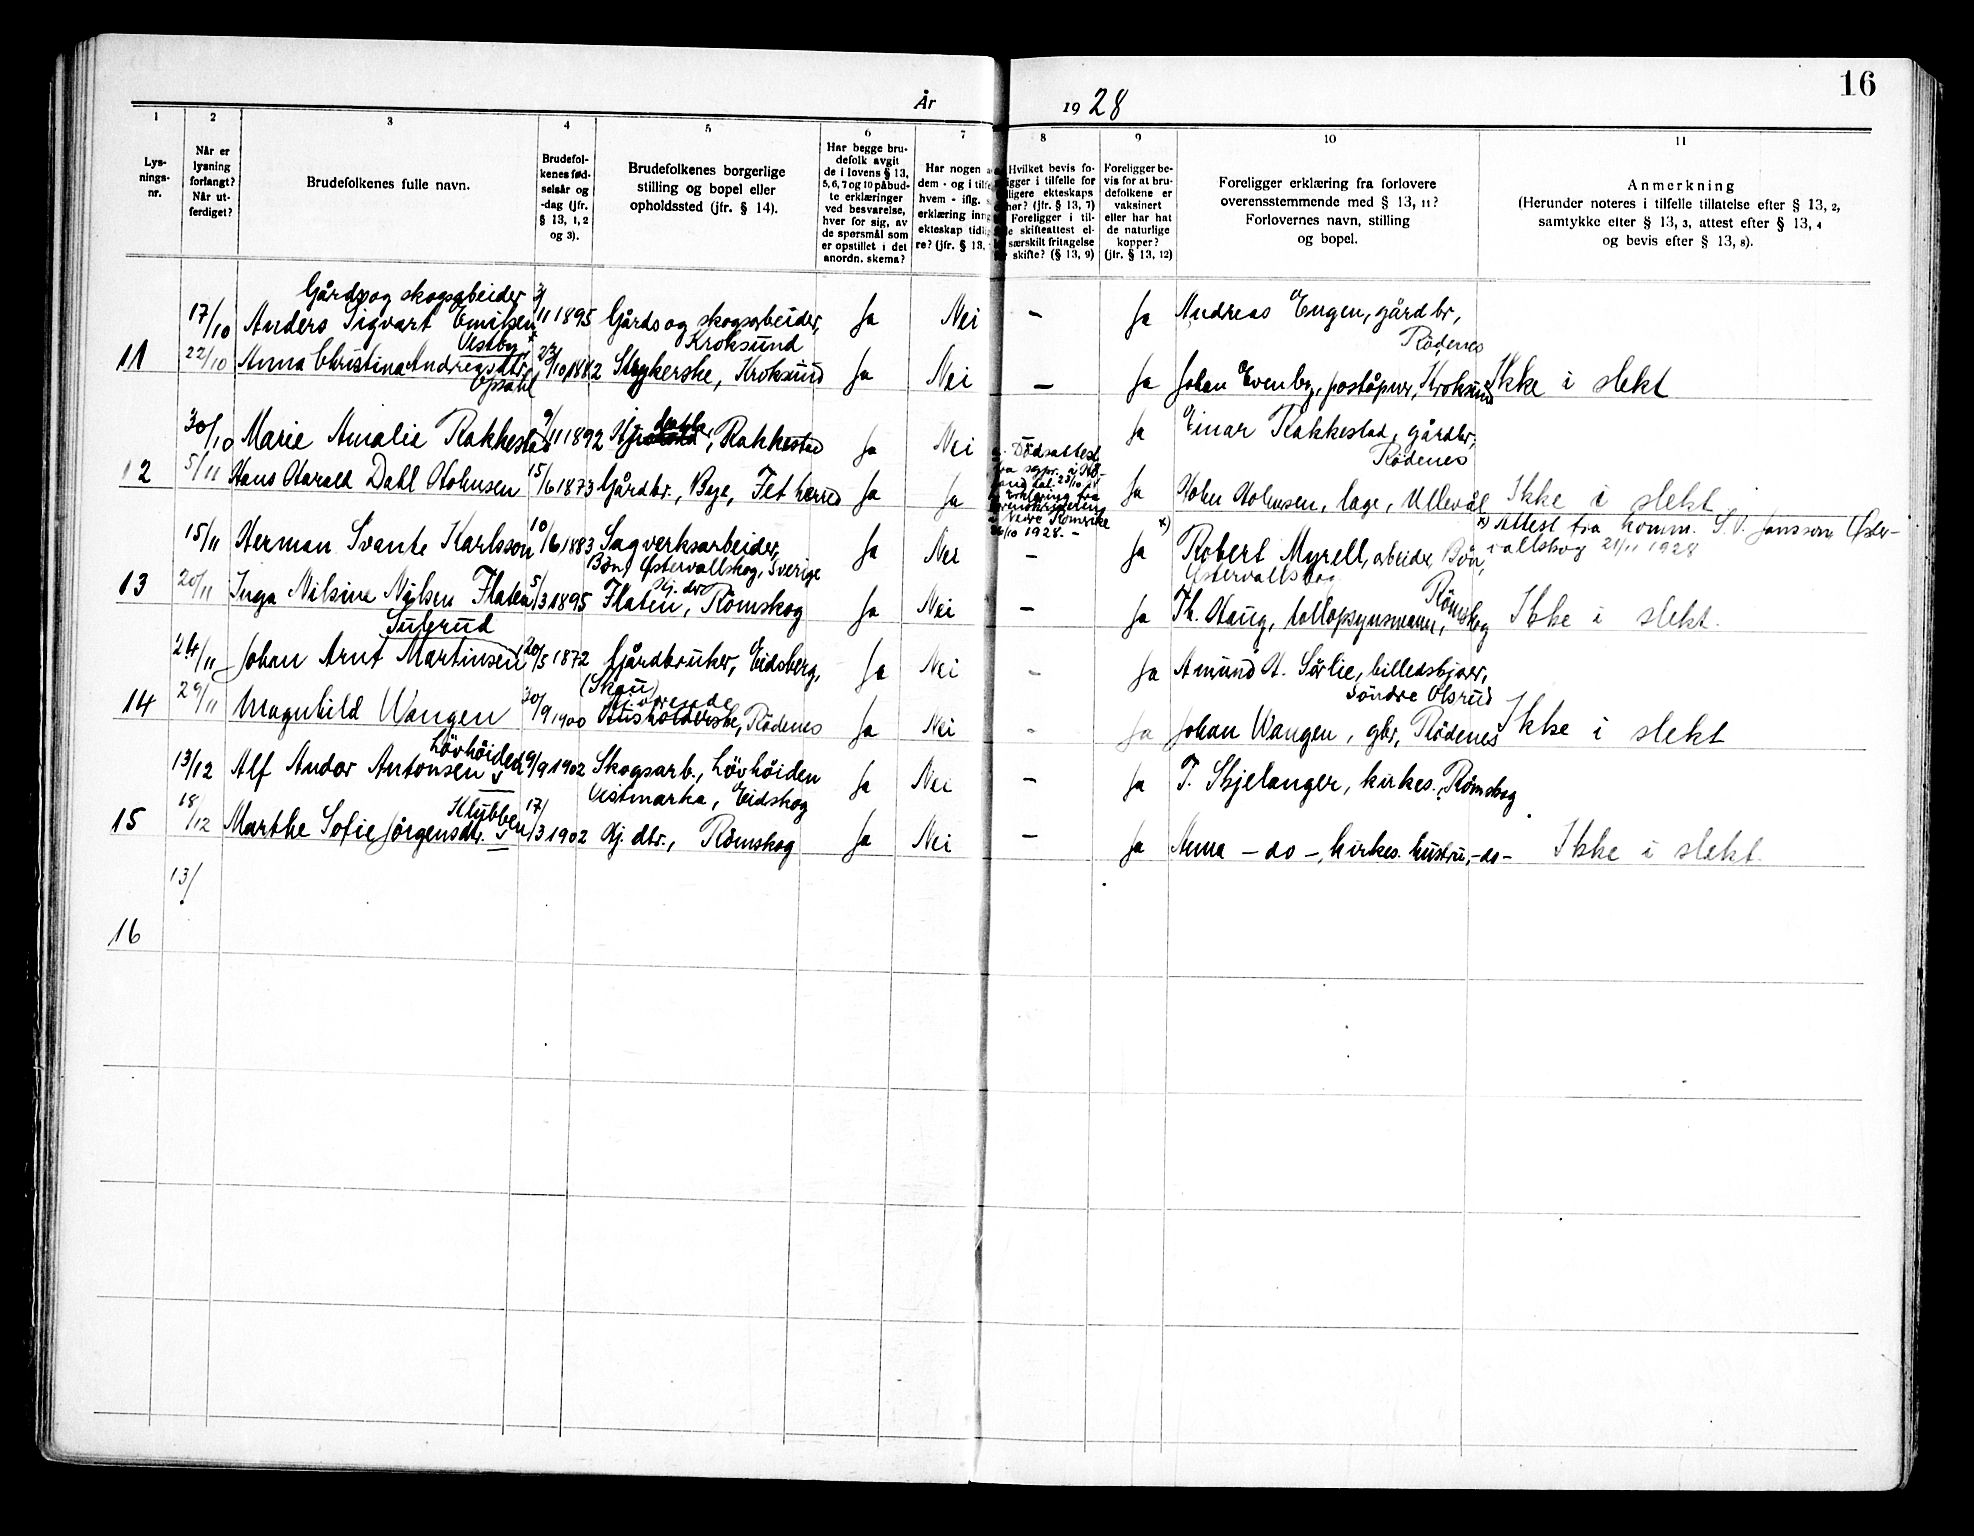 16
År
1928
1
2
3
4
5
6
7
8
9
10
11
Lys-
nings-
nr.
Når er
lysning
forlangt?
Når ut-
ferdiget?
Brudefolkenes fulle navn.
Brudefol-
kenes fød-
selsår og
-dag (jfr.
§ 13, 1, 2
og 3).
Brudefolkenes borgerlige
stilling og bopel eller
opholdssted (jfr. § 14).
Har begge bru-
defolk avgit
de i lovens § 13,
5, 6, 7 og 10 påbud-
te erklæringer
ved besvarelse,
hver for sig, av
de spørsmål som
er opstillet i det
anordn. skema?
Har nogen
dem - og i tilfe
hvem - iflg.
erklæring inng
ekteskap tidli
re? (jfr. § 13,
Hvilket bevis fo-
ligger i tilfelle for
ligere ekteskaps
hør? (jfr. § 13, 7)
Foreligger i til-
le skifteattest el-
særskilt fritagelse
skifte? (§ 13, 9)
Foreligger be-
vis for at bru-
defolkene er
vaksinert
eller har hat
de naturlige
kopper?
(jfr. § 13, 12)
Foreligger erklæring fra forlovere
overensstemmende med § 13, 11?
Forlovernes navn, stilling
og bopel.
Anmerkning
(Herunder noteres i tilfelle tillatelse efter § 13, 2,
samtykke efter § 13, 3, attest efter § 13, 4
og bevis efter § 13, 8).
Gårds og skogsarbeider
17/10 Anders Sigvart Emilsen 3/11 1895 Gårds og skogsarbeider, Ja Nei — Ja Andreas Engen, gårdbr,
Vestby Kroksund Rödenes
11 22/10 Anna Christina Andreasdtr. 27/10 1882 Strykerske, Kroksund Ja Nei — Ja Johan Evenby, poståpner, Kroksund Ikke i slekt
Opsahl
30/10 Marie Amalie Rakkestad 9/11 1892 Hj. datter, Rakkestad Ja Nei Ja Einar Rakkestad, gårdbr,
Rödenes
Dödsattest
12 5/11 Hans Harald Dahl Holmsen 15/6 1873 Gårdbr., Bye, Fet herred Ja Ja Ja Holm Holmsen, læge, Ullevål Ikke i slekt
erklæring fra
Nedre Romerike
26/10 1928. —
15/11 Herman Svante Karlsson 10/6 1883 Sagverksarbeider, Ja Nei — x) Ja Robert Myrell, arbeider, Bön, x) Attest fra komm. S. V. Jansson, Öster-
Bön, Östervallskog, Sverige Östervallskog vallskog 21/11 1928
Hj. dtr
13 20/11 Inga Nilsine Nilsen Flaten 5/3 1895 Flaten, Römskog Ja Nei — Ja Th. Haug, tollopsynsmann, Römskog Ikke i slekt.
Sulerud
24/11 Johan Arnt Martinsen 20/5 1872 Gårdbruker, Eidsberg, Ja Nei — Ja Amund H. Sörlie, billedskjærer,
(Skau) Söndre Olsrud
Hj. værende
14 29/11 Magnhild Wangen 30/9 1900 Husholderske, Rödenes Ja Nei - Ja Johan Wangen, gbr, Rödenes Ikke i slekt
Lövhöiden
13/12 Alf Andor Antonsen 9/9 1902 Skogsarb., Lövhöiden Ja Nei — Ja T. Skjelanger, kirkes., Römskog
Vestmarka, Eidskog
Klubben
15 18/12 Marthe Sofie Jörgensdtr. 17/3 1902 Hj. dtr., Römskog Ja Nei — Ja Anna — do —, kirkes. hustru, -do- Ikke i slekt.
13/
16